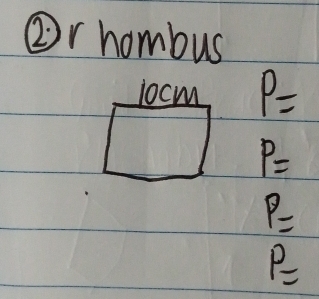 2. rhombus
10cm
P=
P=
P=
P=